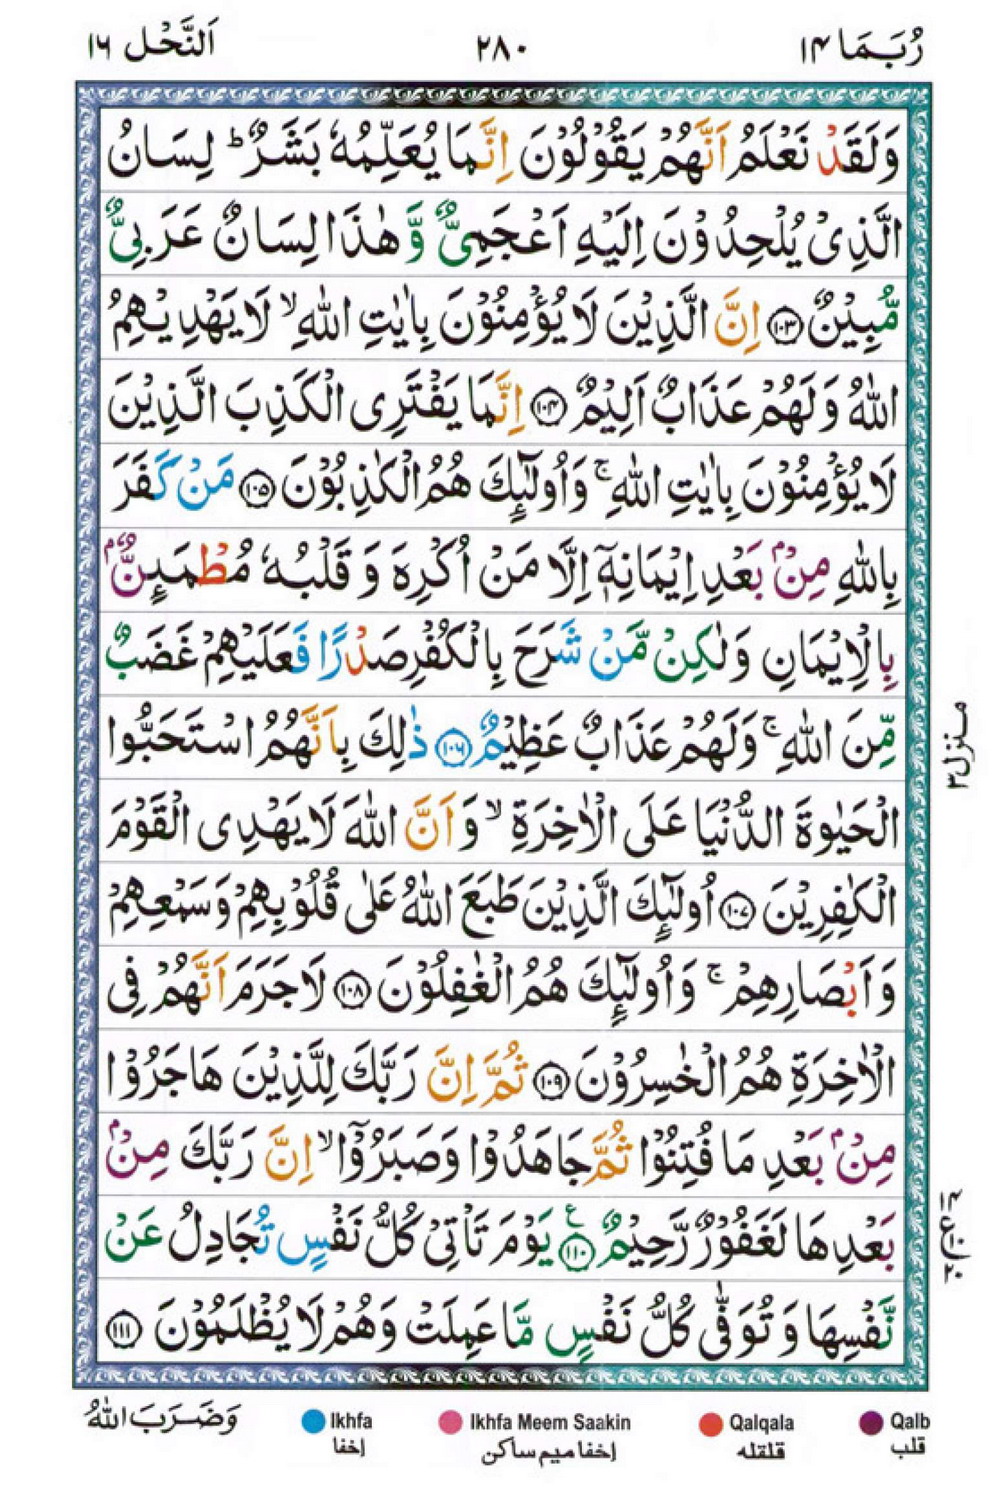 رُبَمَا ١٤
٢٨٠
اَلنَّحْل ١٦
وَلَقَدْ نَعْلَمُ اَنَّهُمْ يَقُوْلُوْنَ اِنَّمَا يُعَلِّمُهٗ بَشَرٌ ؕ لِسَانُ
الَّذِىْ يُلْحِدُوْنَ اِلَيْهِ اَعْجَمِىٌّ وَّ هٰذَا لِسَانٌ عَرَبِىٌّ
مُّبِيْنٌ ١٠٣ اِنَّ الَّذِيْنَ لَا يُؤْمِنُوْنَ بِاٰيٰتِ اللّٰهِ ۙ لَا يَهْدِيْهِمُ
اللّٰهُ وَلَهُمْ عَذَابٌ اَلِيْمٌ ١٠٤ اِنَّمَا يَفْتَرِى الْكَذِبَ الَّذِيْنَ
لَا يُؤْمِنُوْنَ بِاٰيٰتِ اللّٰهِ ۚ وَاُولٰٓئِكَ هُمُ الْكٰذِبُوْنَ ١٠٥ مَنْ كَفَرَ
بِاللّٰهِ مِنْۢ بَعْدِ اِيْمَانِهٖۤ اِلَّا مَنْ اُكْرِهَ وَ قَلْبُهٗ مُطْمَئِنٌّۢ
بِالْاِيْمَانِ وَلٰكِنْ مَّنْ شَرَحَ بِالْكُفْرِ صَدْرًا فَعَلَيْهِمْ غَضَبٌ
مِّنَ اللّٰهِ ۚ وَلَهُمْ عَذَابٌ عَظِيْمٌ ١٠٦ ذٰلِكَ بِاَنَّهُمُ اسْتَحَبُّوا
الْحَيٰوةَ الدُّنْيَا عَلَى الْاٰخِرَةِ ۙ وَ اَنَّ اللّٰهَ لَا يَهْدِى الْقَوْمَ
الْكٰفِرِيْنَ ١٠٧ اُولٰٓئِكَ الَّذِيْنَ طَبَعَ اللّٰهُ عَلٰى قُلُوْبِهِمْ وَسَمْعِهِمْ
وَ اَبْصَارِهِمْ ۚ وَ اُولٰٓئِكَ هُمُ الْغٰفِلُوْنَ ١٠٨ لَا جَرَمَ اَنَّهُمْ فِى
الْاٰخِرَةِ هُمُ الْخٰسِرُوْنَ ١٠٩ ثُمَّ اِنَّ رَبَّكَ لِلَّذِيْنَ هَاجَرُوْا
مِنْۢ بَعْدِ مَا فُتِنُوْا ثُمَّ جَاهَدُوْا وَصَبَرُوْۤا ۙ اِنَّ رَبَّكَ مِنْۢ
بَعْدِهَا لَغَفُوْرٌ رَّحِيْمٌ ١١٠ ع يَوْمَ تَاْتِىْ كُلُّ نَفْسٍ تُجَادِلُ عَنْ
نَّفْسِهَا وَ تُوَفّٰى كُلُّ نَفْسٍ مَّا عَمِلَتْ وَهُمْ لَا يُظْلَمُوْنَ ١١١
منزل ٣
١٤
ع
٢٠
Qalb
قلب
Qalqala
قلقله
Ikhfa Meem Saakin
إخفا ميم ساكن
Ikhfa
إخفا
وَضَرَبَ اللّٰهُ